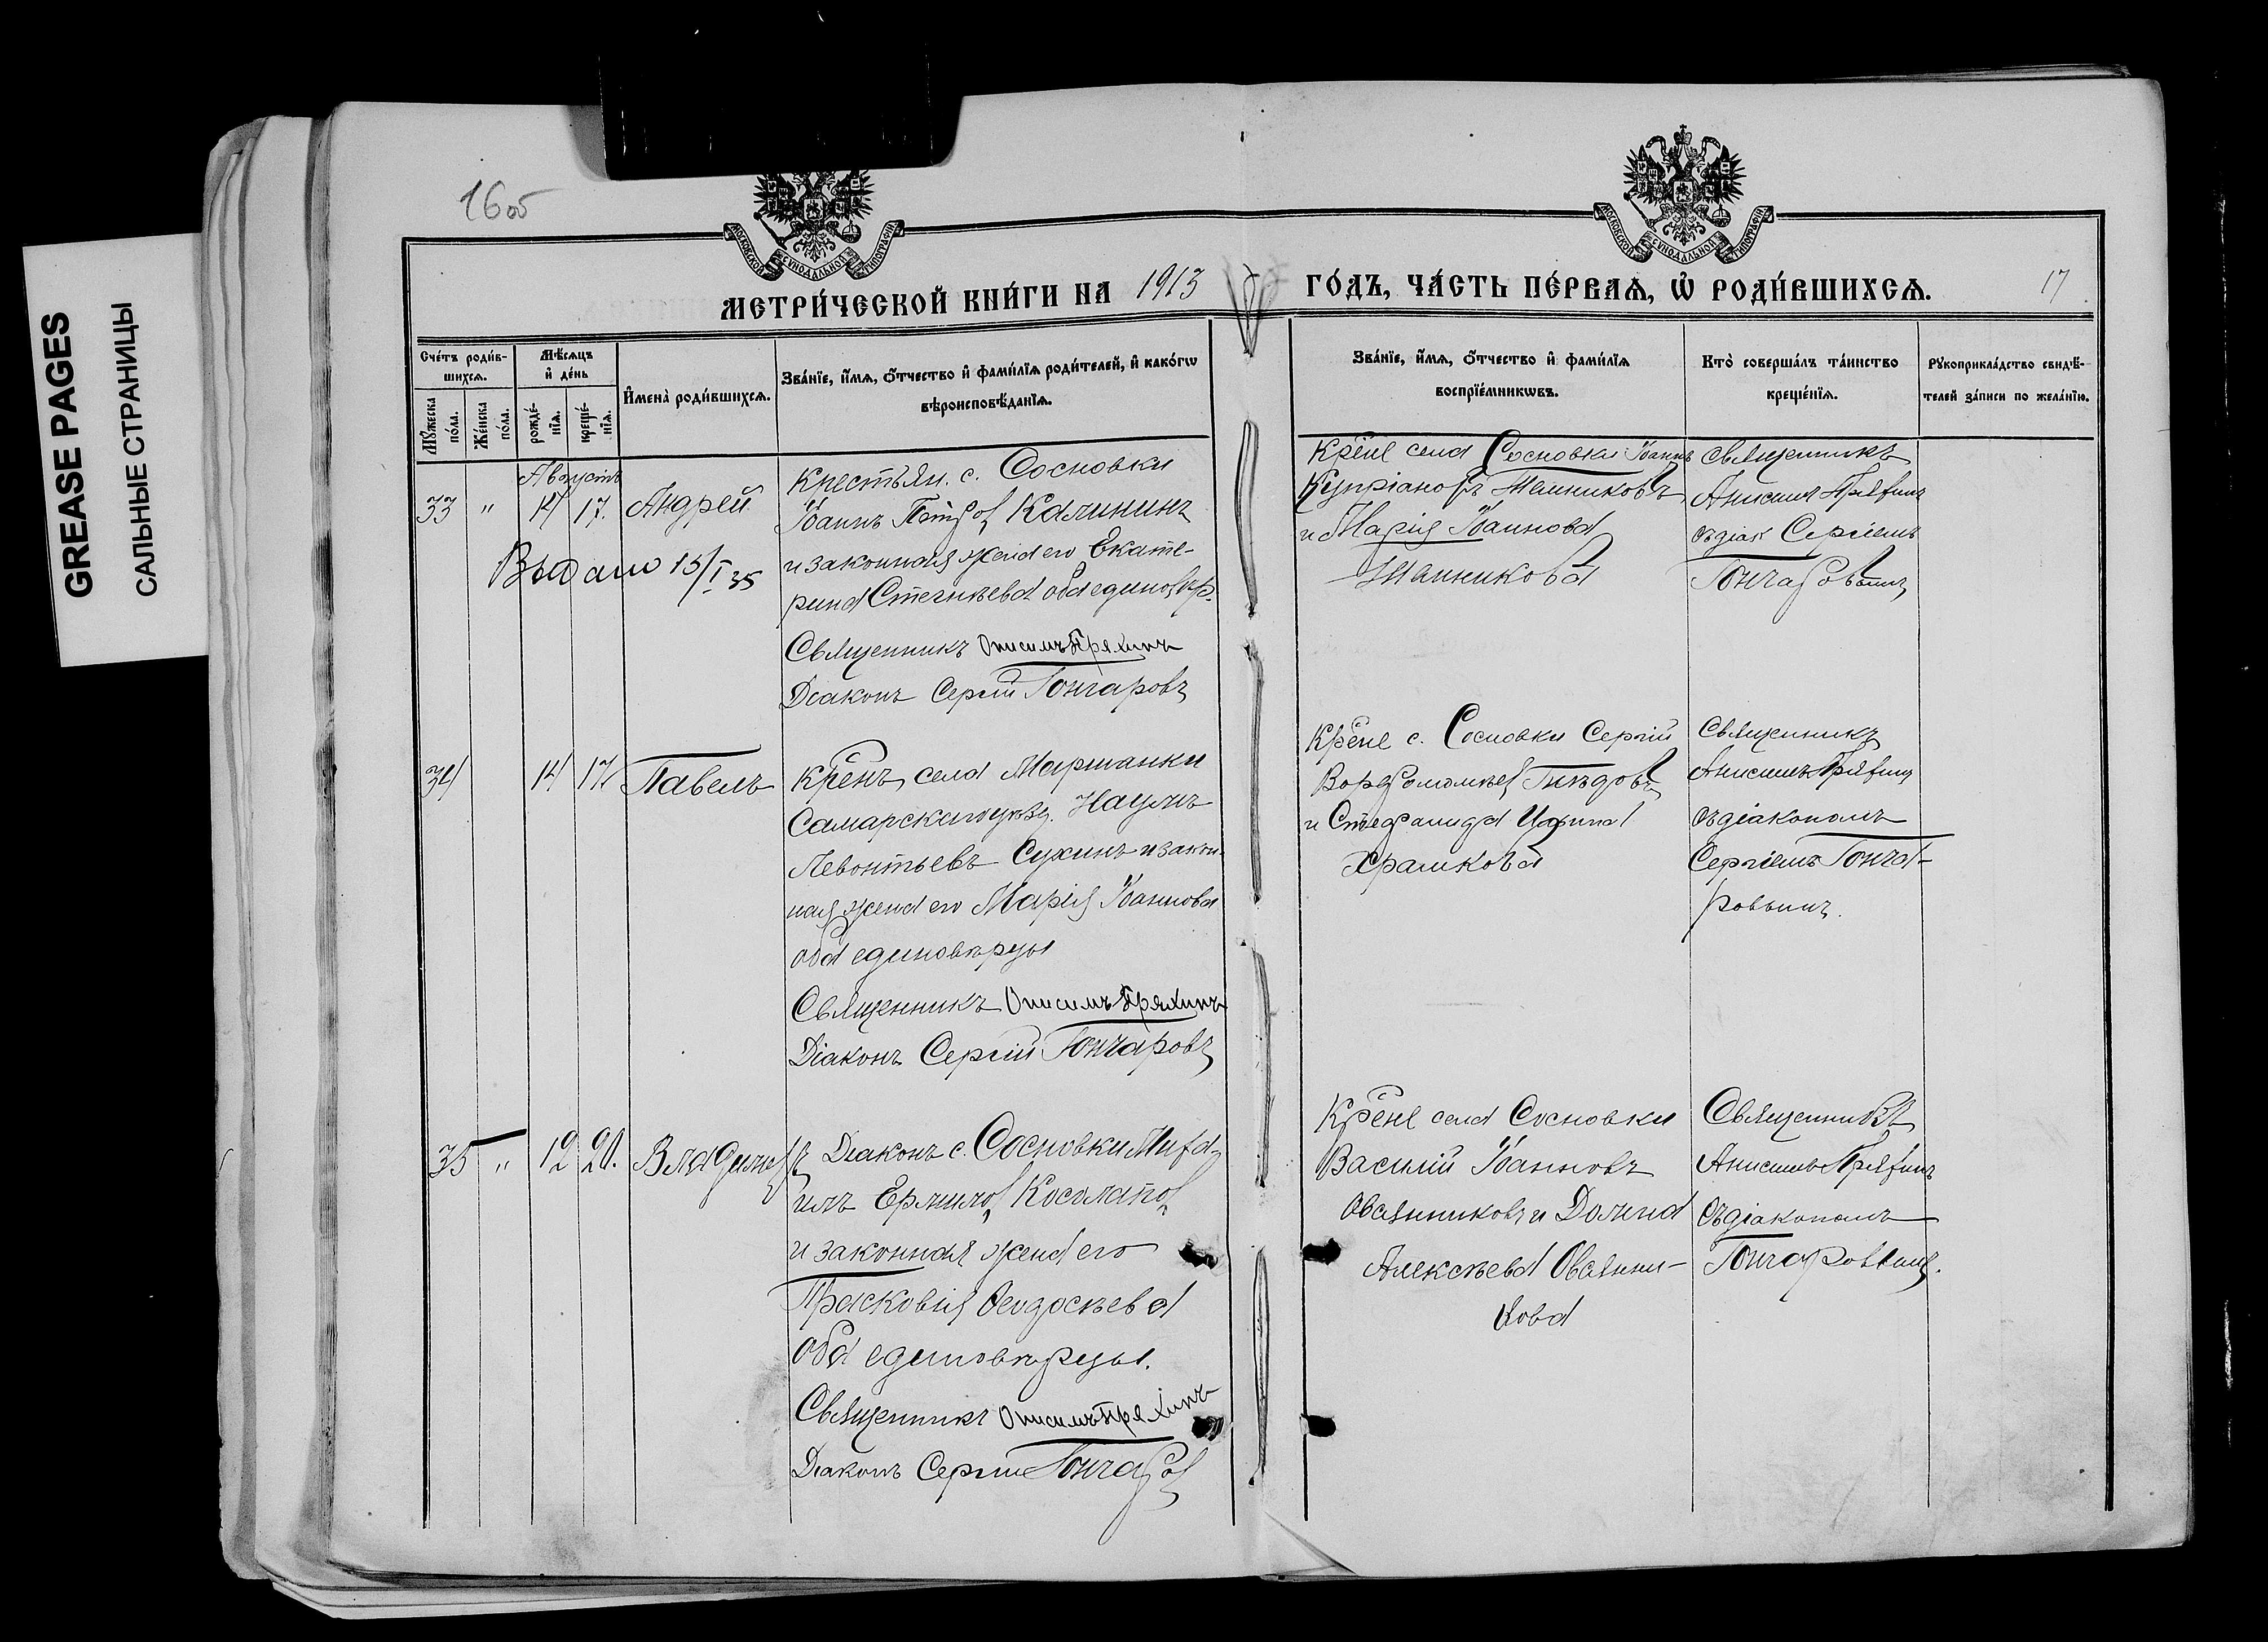 GREASE PAGES
САЛЬНЫЕ СТРАНИЦЫ
16об
МОСКОВСКОЙ СѴНОДАЛЬНОЙ ТИПОГРАФІИ
МОСКОВСКОЙ СѴНОДАЛЬНОЙ ТИПОГРАФІИ
МЕТРИ́ЧЕСКОЙ КНИ́ГИ НА 1913 ГО́ДЪ, ЧА́СТЬ ПЕ́РВАѦ, Ѡ҆ РОДИ́ВШИХСѦ.
17
Сче́тъ роди́в-
шихсѧ.
Мꙋ́жеска по́ла.
Же́нска по́ла.
Мѣ́сѧцъ
и҆ де́нь
рожде́-
нїѧ.
креще́-
нїѧ.
И҆мена̀ роди́вшихсѧ.
Зва́нїе, и҆́мѧ, ѻ҆́тчество и҆ фами́лїѧ роди́телей, и҆ како́гѡ
вѣроисповѣ́данїѧ.
Зва́нїе, и҆́мѧ, ѻ҆́тчество и҆ фами́лїѧ
воспрїе́мникѡвъ.
Кто̀ соверша́лъ та́инство
креще́нїѧ.
Рꙋкоприкла́дство свидѣ́-
телей за́писи по жела́нїю.
Августъ
33 " 14 17. Андрей
Выдано 15/I 35
Крестьян. с. Сосновки
Іоаннъ Петров Калининъ
и законная жена его Екате-
рина Стегнѣева оба единовѣр.
Священникъ Онисимъ Пряхинъ
Діаконъ Сергій Гончаровъ
Кр̃не села Сосновки Іоаннъ
Купріановъ
и Марія Іоаннова
Священникъ
Анисимъ Пряхинъ
съ діак Сергіемъ
Гончаровымъ
34 14 17 Павелъ
Кр̃нъ села Марьянки
Самарскаго уѣзд. Наумъ
Левонтьевъ Сухинъ и закон-
ная жена его Марія Іоаннова
оба единовѣрцы
Священникъ Онисимъ Пряхинъ
Діаконъ Сергій Гончаровъ
Кр̃не с. Сосновки Сергій
Варфоломѣев Гнѣдовъ
и Стефанида
Храмкова
Священникъ
Анисимъ Пряхинъ
съ діакономъ
Сергіемъ Гонча-
ровымъ.
35 " 19 20. Владиміръ
Діаконъ с. Сосновки Миха-
илъ Ермилов Косолапов
и законная жена его
Прасковія Ѳеодосѣева
Оба единовѣрцы.
Священникъ Онисимъ Пряхинъ
Діаконъ Сергій Гончаров
Кр̃не села Сосновки
Василій Іоанновъ
Овсянниковъ и Домна
Алексѣева Овсянни-
кова
Священникъ
Анисимъ Пряхинъ
съ діакономъ
Гончаровымъ.